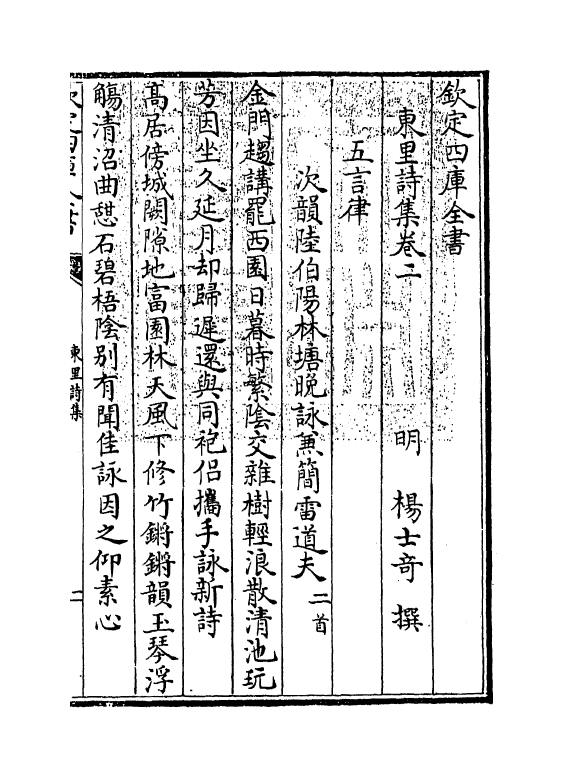 欽定四庫全書
東里詩集卷二
明 楊士奇 撰
五言律
次韻陸伯陽林塘晚詠兼簡雷道夫 二首
金門趨講罷西園日暮時繁陰交雜樹輕浪散清池玩
芳因坐久延月却歸遲還與同袍侶攜手詠新詩
髙居傍城闕隙地富園林天風下修竹鏘鏘韻玉琴浮
觴清沼曲憇石碧梧隂别有聞佳詠因之仰素心
欽定四庫全書
東里詩集